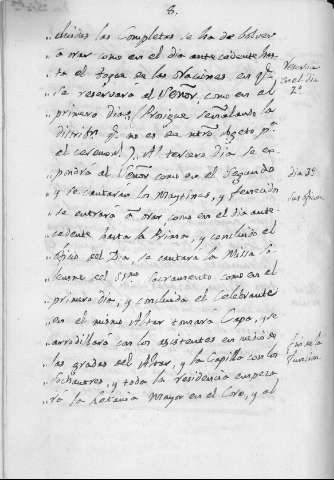 8.
„cluidas las Completas se ha de bolver
„a orar como en el dia antecedente has-
„ta el toque en las oraciones en qe.
„se reservara el Señor, como en el
„primero dia, (Prosigue señalando la
distribn. qe. no es de ntro. objeto pa.
el ceremonl.). Al tercero dia se ex-
„pondrá el Señor como en el Segundo
„y se cantarán los Maytines, y
„se entrará a orar como en el dia ante-
„cedente hasta la Prima, y concluido el
„oficio del Dia, se cantara la Missa so-
„lemne del SSmo. Sacramento como en el
„primero dia, y concluida el Celebrante
„en el mismo Altar tomará Capa, y se
„arrodillará con los asistentes en medio de
„las gradas del Altar, y la Capilla con los
„Sochantres, y toda la residencia empeza-
„rá la Letania Mayor en el Coro, y al
Reserva
en el dia
2º
dia 3º
sus oficios
fin de la
funcion